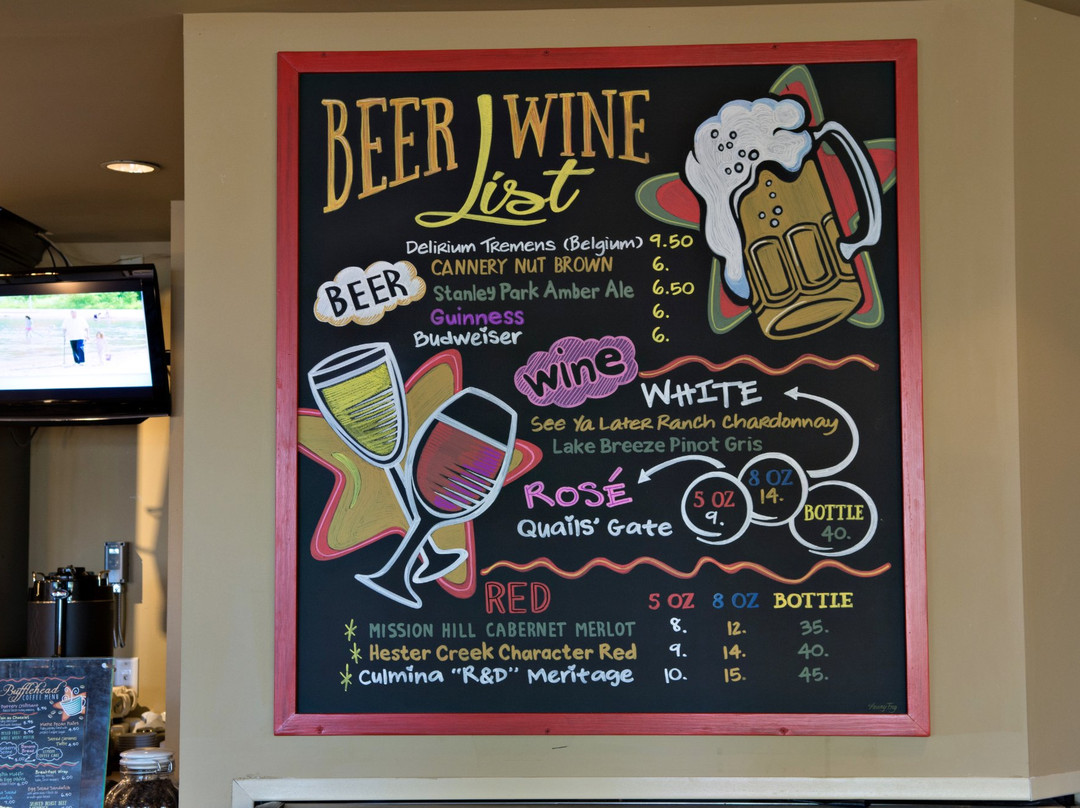 BEER WINE
List
Delirium Tremens (Belgium) 9.50
CANNERY NUT BROWN 6.
BEER
Stanley Park Amber Ale 6.50
Guinness 6.
Budweiser 6.
wine
WHITE
See Ya Later Ranch Chardonnay
Lake Breeze Pinot Gris
ROSÉ
Quails' Gate
5 OZ
9.
8 OZ
14.
BOTTLE
40.
RED 5 OZ 8 OZ BOTTLE
MISSION HILL CABERNET MERLOT 8. 12. 35.
Hester Creek Character Red 9. 14. 40.
Culmina "R&D" Meritage 10. 15. 45.
Bufflehead
COFFEE MENU